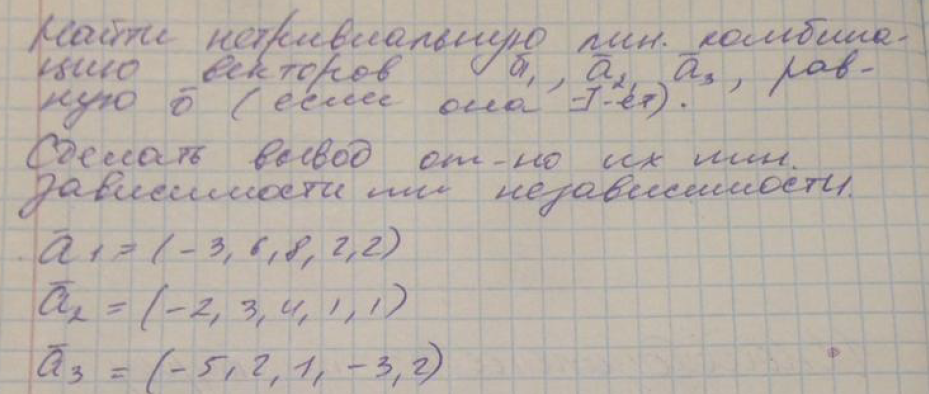 Найти нетривиальную лин. комбина-
цию векторов ā₁, ā₂, ā₃, рав-
ную ō (если она -]-ет).
Сделать вывод от-но их лин.
зависимости или независимости.
ā₁ = (-3, 6, 8, 2, 2)
ā₂ = (-2, 3, 4, 1, 1)
ā₃ = (-5, 2, 1, -3, 2)